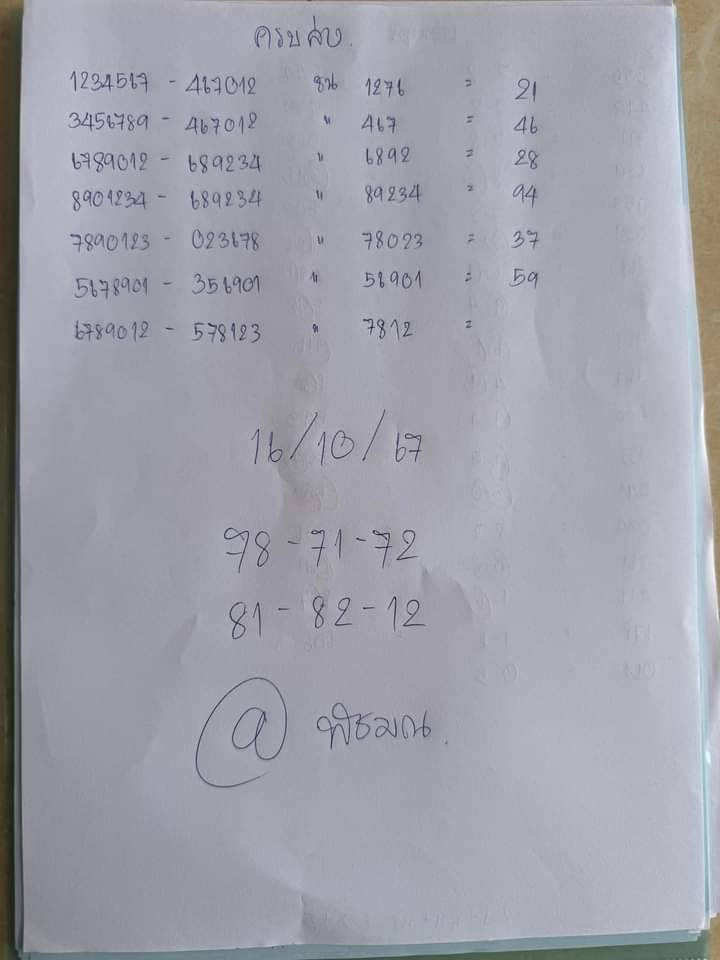 ครบสูตร.
1234567 - 467012 ชน 1276 = 21
3456789 - 467012 " 467 = 46
6789012 - 689234 " 6892 = 28
8901234 - 689234 " 89234 = 94
7890123 - 023678 " 78023 = 37
5678901 - 356901 " 56901 = 59
6789012 - 578123 " 7812 =
16/10/67
78 - 71 - 72
81 - 82 - 12
@ พิชมณ.